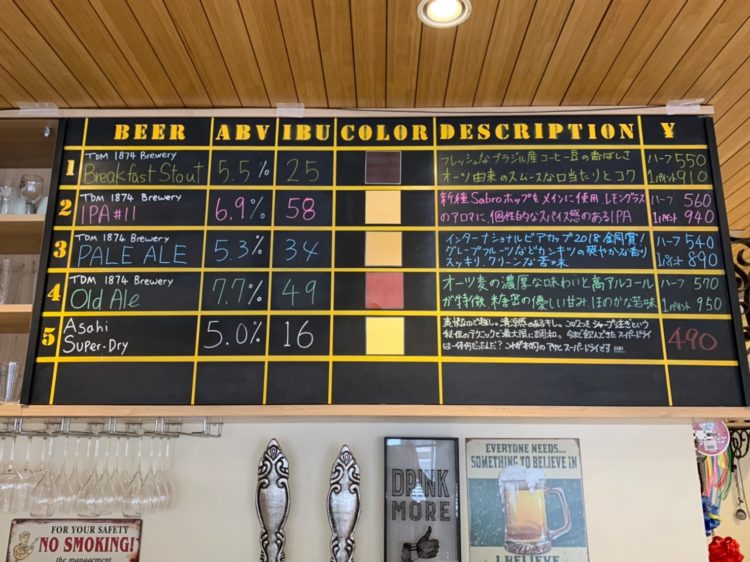 BEER ABV IBU COLOR DESCRIPTION ¥
1 TDM 1874 Brewery
Breakfast Stout 5.5% 25
フレッシュなブラジル産コーヒー豆の香ばしさ
オーツ由来のスムースな口当たりとコク
ハーフ 550
1パイント 910
2 TDM 1874 Brewery
IPA#11 6.9% 58
新種Sabroホップをメインに使用、レモングラス
のアロマに、個性的なスパイス感のあるIPA
ハーフ 560
1パイント 940
3 TDM 1874 Brewery
PALE ALE 5.3% 34
インターナショナルビアカップ2018金賞!
グレープフルーツなどカンキツの爽やかな香り
スッキリ、クリーンな苦味
ハーフ 540
1パイント 890
4 TDM 1874 Brewery
Old Ale 7.7% 49
オーツ麦の濃厚な味わいと高アルコール
が特徴、糖蜜の優しい甘み、ほのかな苦味
ハーフ 570
1パイント 950
5 Asahi
Super-Dry 5.0% 16
清涼感のあるキレ。この2つをシャープ注ぎという
最大限に調和。今まで飲んできたスーパードライ
は一体何だったんだ?
490
FOR YOUR SAFETY
NO SMOKING!
the management
DRINK
MORE
EVERYONE NEEDS...
SOMETHING TO BELIEVE IN
I BELIEVE